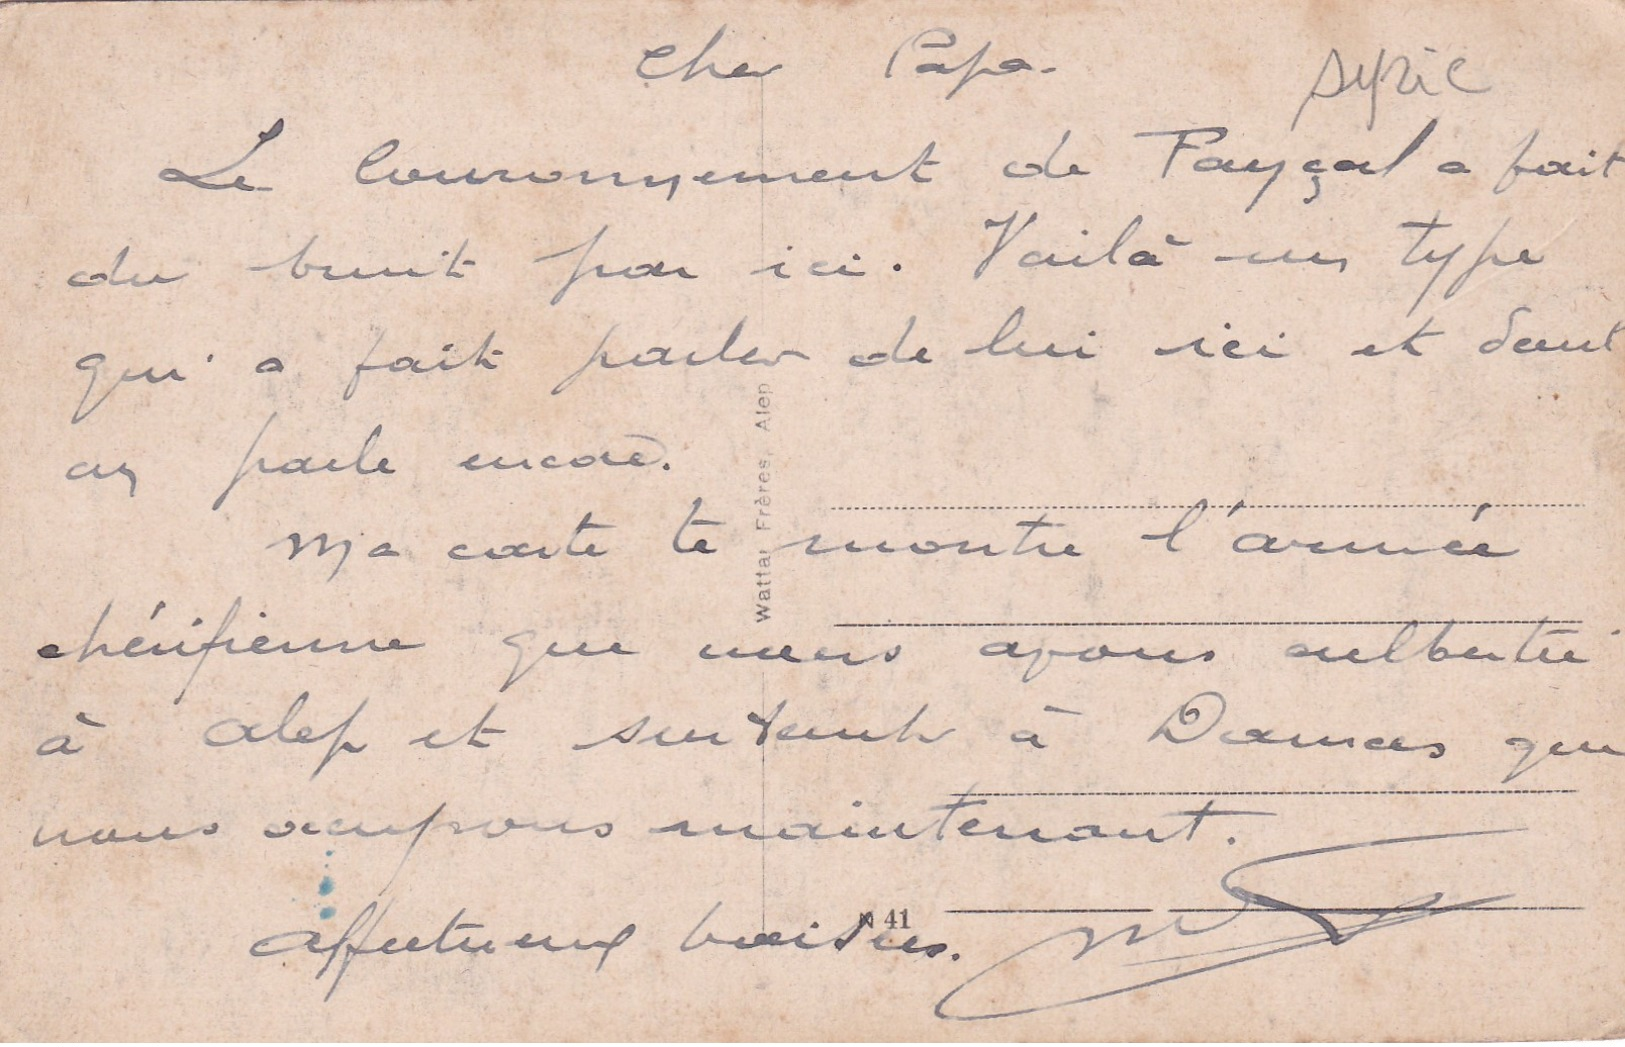 Cher Papa.
Syrie
Le Couronnement de Fayçal a fait
du bruit par ici. Voilà un type
qui a fait parler de lui ici et dont
on parle encore.
Ma carte te montre l'armée
chérifienne que nous avons culbutée
à Alep et surtout à Damas que
nous occupons maintenant.
Affectueux baisers.
Wattar Frères, Alep
N 41